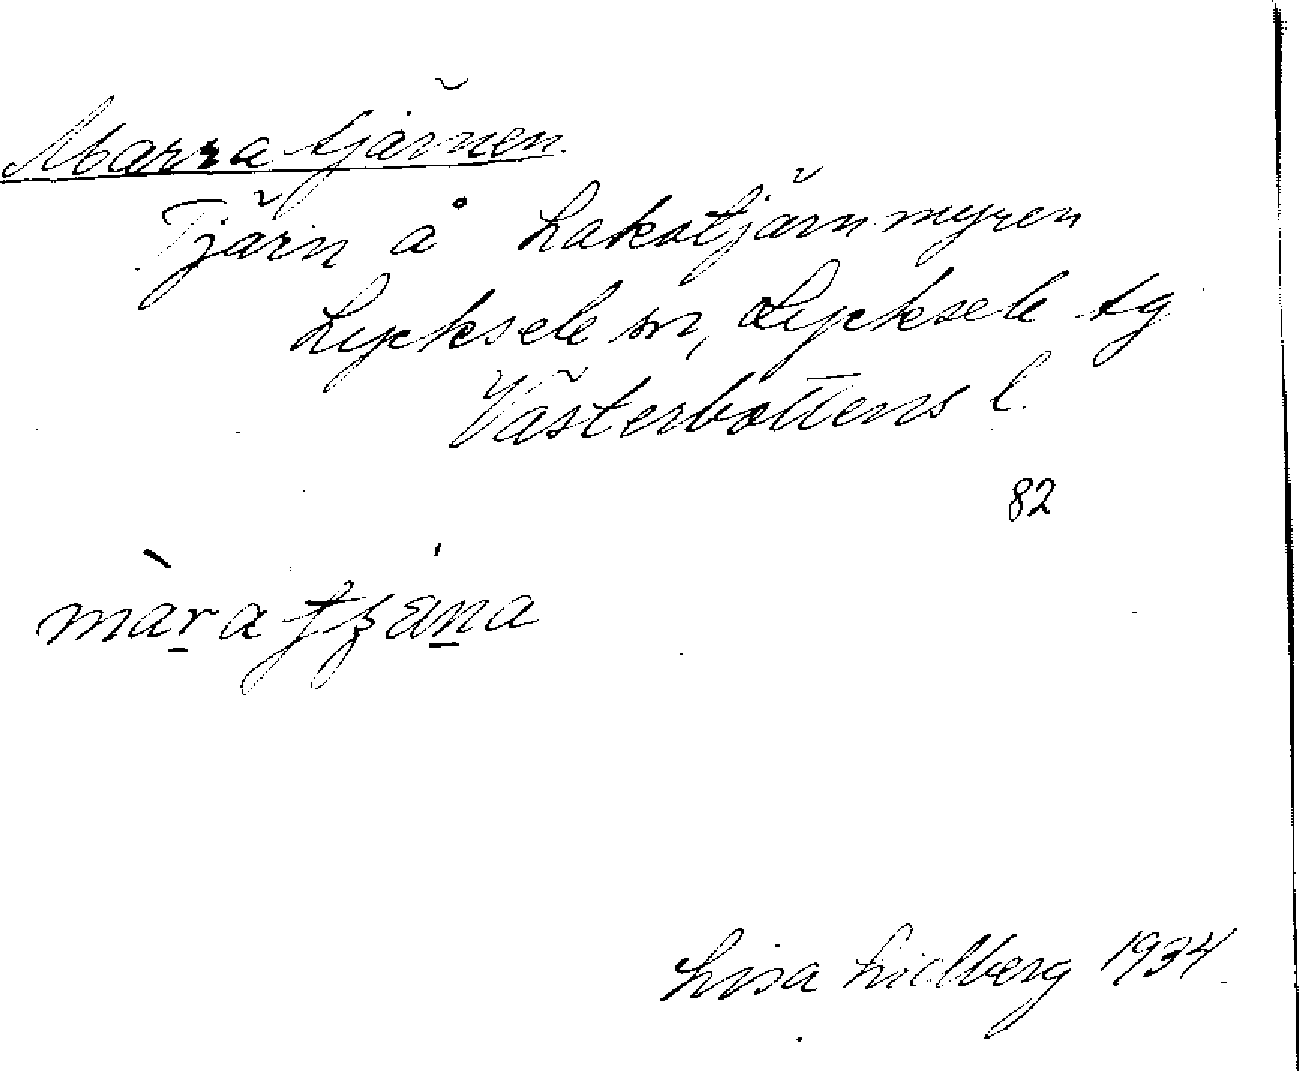 Marra tjärnen.
Tjärn å Lakatjärnmyren
Lycksele sn, Lycksele tg
Västerbottens l.
82
Lisa Lidberg 1934